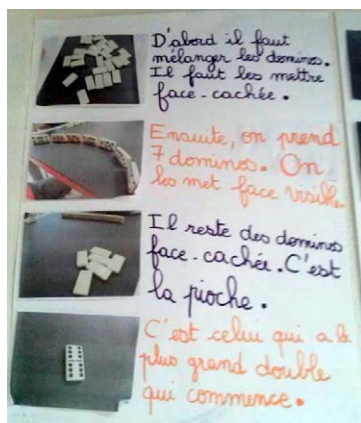 D'abord il faut
mélanger les dominos.
Il faut les mettre
face-cachée.
Ensuite, on prend
7 dominos. On
les met face visible.
Il reste des dominos
face-cachée. C'est
la pioche.
C'est celui qui a le
plus grand double
qui commence.